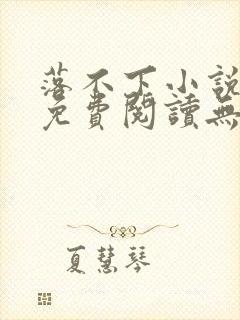 落不下小說
免費閱讀無
夏慧琴